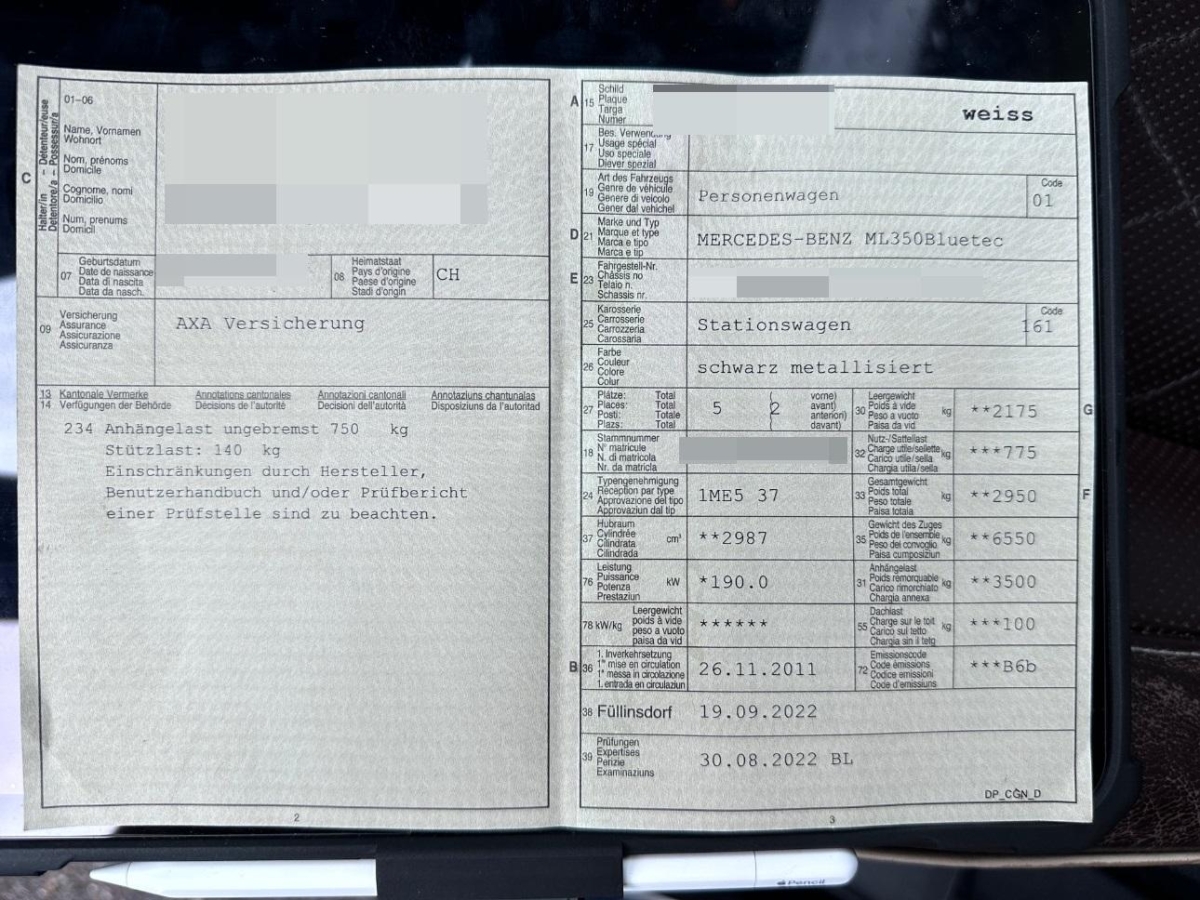 C
Halter/in – Détenteur/euse
Detentore/a – Possessur/a
01-06
Name, Vornamen
Wohnort
Nom, prénoms
Domicile
Cognome, nomi
Domicilio
Num, prenums
Domicil
07
Geburtsdatum
Date de naissance
Data di nascita
Data da nasch.
08
Heimatstaat
Pays d'origine
Paese d'origine
Stadi d'origin
CH
09
Versicherung
Assurance
Assicurazione
Assicuranza
AXA Versicherung
13 Kantonale Vermerke Annotations cantonales Annotazioni cantonali Annotaziuns chantunalas
14 Verfügungen der Behörde Décisions de l'autorité Decisioni dell'autorità Disposiziuns da l'autoritad
234 Anhängelast ungebremst 750 kg
Stützlast: 140 kg
Einschränkungen durch Hersteller,
Benutzerhandbuch und/oder Prüfbericht
einer Prüfstelle sind zu beachten.
2
A 15
Schild
Plaque
Targa
Numer
weiss
17
Bes. Verwendung
Usage spécial
Uso speciale
Diever spezial
19
Art des Fahrzeugs
Genre de véhicule
Genere di veicolo
Gener dal vehichel
Personenwagen
Code
01
D 21
Marke und Typ
Marque et type
Marca e tipo
Marca e tip
MERCEDES-BENZ ML350Bluetec
E 23
Fahrgestell-Nr.
Châssis no
Telaio n.
Schassis nr.
25
Karosserie
Carrosserie
Carrozzeria
Carossaria
Stationswagen
Code
161
26
Farbe
Couleur
Colore
Colur
schwarz metallisiert
27
Plätze: Total
Places: Total
Posti: Totale
Plazs: Total
5 2
vorne)
avant)
anteriori)
davant)
30
Leergewicht
Poids à vide
Peso a vuoto
Paisa da vid
kg
**2175
G
18
Stammnummer
N° matricule
N. di matricola
Nr. da matricla
32
Nutz-/Sattellast
Charge utile/sellette
Carico utile/sella
Chargia utila/sella
kg
***775
24
Typengenehmigung
Réception par type
Approvazione del tipo
Approvaziun dal tip
1ME5 37
33
Gesamtgewicht
Poids total
Peso totale
Paisa totala
**2950
F
37
Hubraum
Cylindrée
Cilindrata
Cilindrada
cm³
**2987
35
Gewicht des Zuges
Poids de l'ensemble
Peso del convoglio
Paisa cumposiziun
kg
**6550
76
Leistung
Puissance
Potenza
Prestaziun
kW
*190.0
31
Anhängelast
Poids remorquable
Carico rimorchiato
Chargia annexa
kg
**3500
78 kW/kg
Leergewicht
poids à vide
peso a vuoto
paisa da vid
******
55
Dachlast
Charge sur le toit
Carico sul tetto
Chargia sin il tetg
kg
***100
B 36
1. Inverkehrsetzung
1re mise en circulation
1a messa in circolazione
1. entrada en circulaziun
26.11.2011
72
Emissionscode
Code émissions
Codice emissioni
Code d'emissiuns
***B6b
38 Füllinsdorf 19.09.2022
39
Prüfungen
Expertises
Perizie
Examinaziuns
30.08.2022 BL
DP_CGN_D
3
Pencil